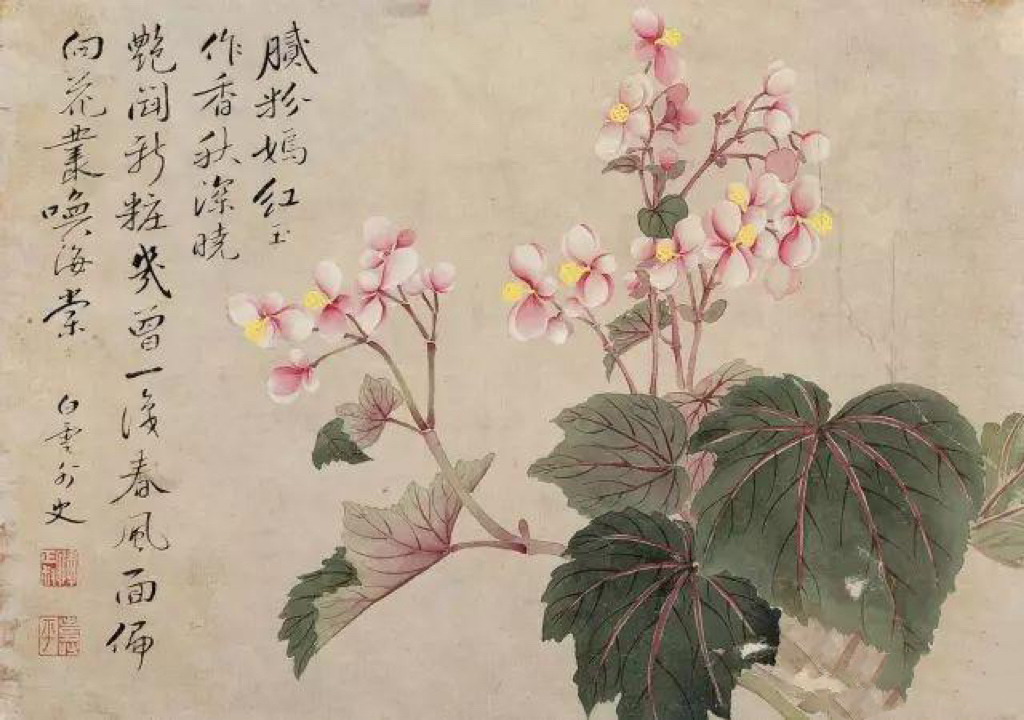 膩粉嫣紅玉
作香秋深曉
艷鬭新粧幾曾一識春風面偏
向花叢喚海棠
白雲外史